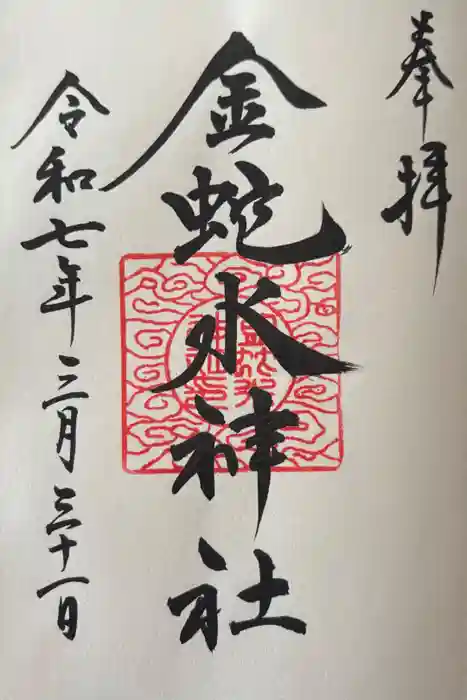 奉拝
金蛇水神社
令和七年三月三十一日